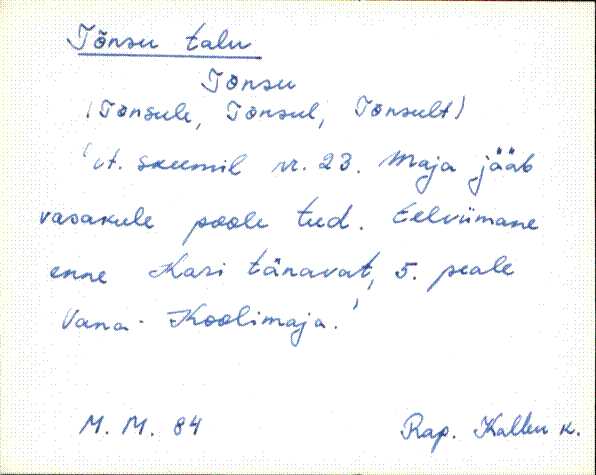 Tõnsu talu
Tõnsu
(Tõnsule, Tõnsul, Tõnsult)
'vt. skeemil nr. 23. Maja jääb
vasakule poole teed. Eelviimane
enne Kasi tänavat, 5. peale
Vana-Koolimaja.'
M. M. 84
Rap. Kallu k.